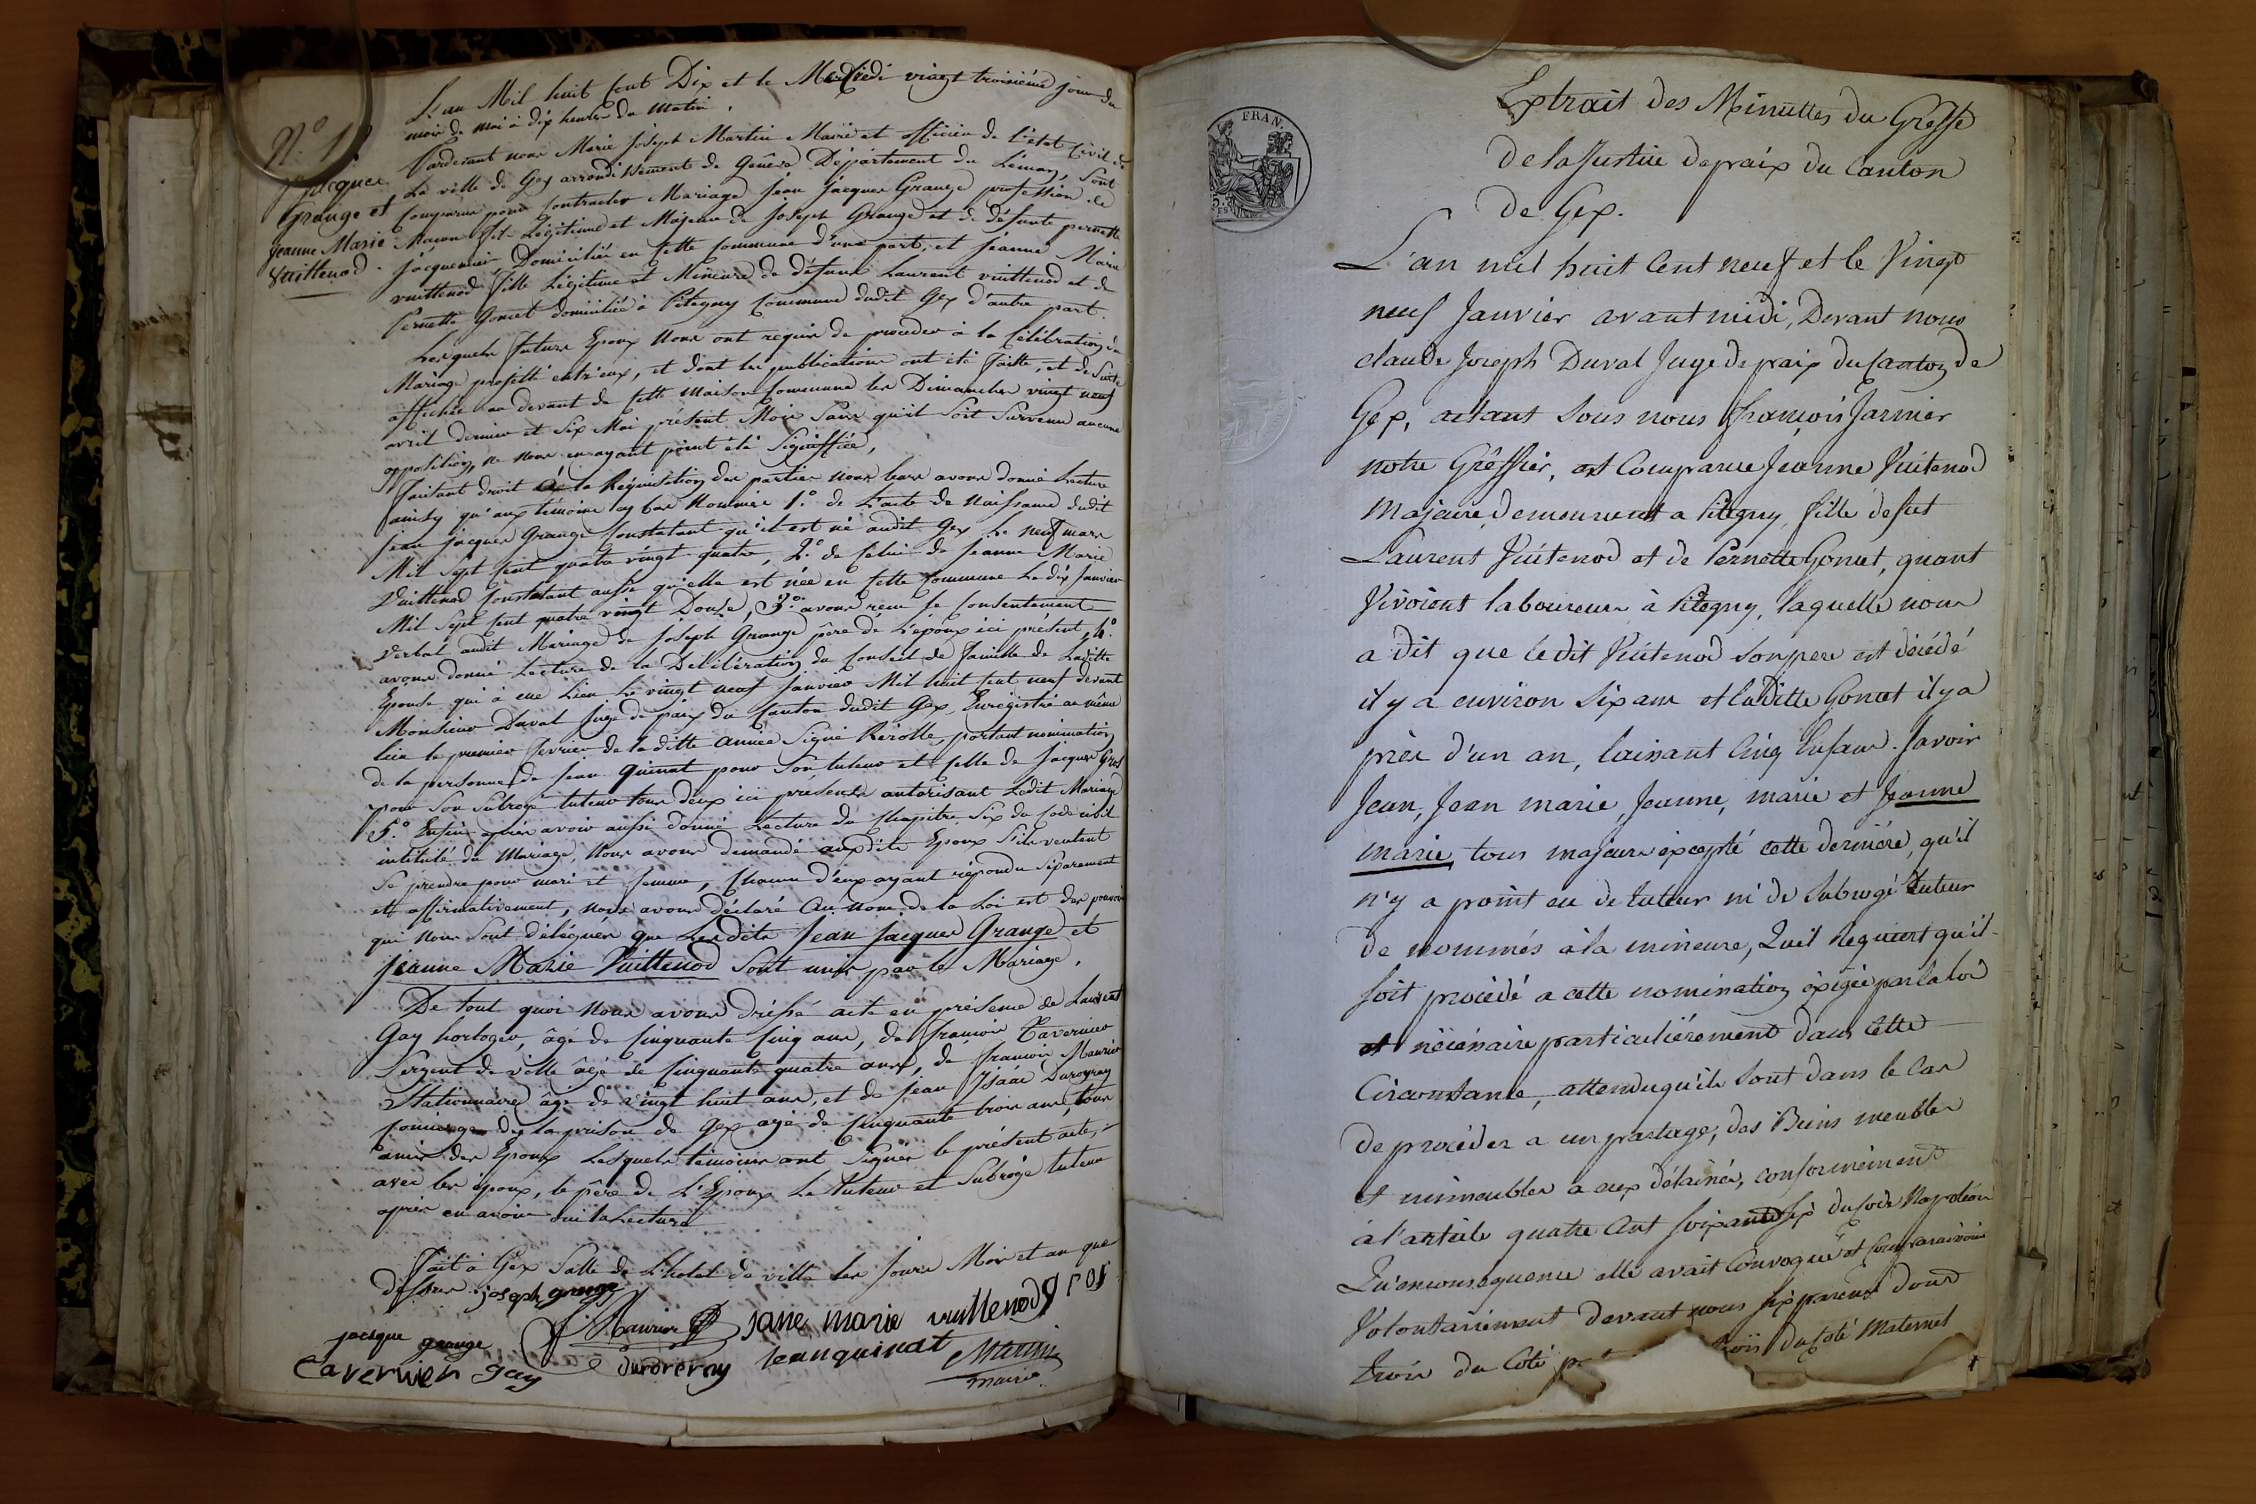 L'an Mil huit Cent Dix et le Mercredi vingt troisième jour du
mois de Mai à dix heures du matin.
N.º 1
Jacques
Grange et
Jeanne Marie
Vuittenod.
Pardevant nous Marie Joseph Martin Maire et officier de l'état Civil de
La ville de Gex arrondissement de Genève Département du Léman, Sont
Comparus pour Contracter Mariage Jean Jacques Grange profession de
Macon fils Légitime et Majeur de Joseph Grange et de défunte pernette
Jacquemier, Domiciliés en Cette Commune d'une part, et Jeanne Marie
vuittenod fille Légitime et Mineure de défunt Laurent vuittenod et de
Pernette Goncet domiciliée à Pitegny Commune dudit Gex d'autre part.
Lesquels futurs Epoux Nous ont requis de proceder à la Célébration du
Mariage projetté entr'eux, et dont les publications ont été faitte, et de Suite
affichée au devant de Cette Maison Commune les Dimanches vingt neuf
avril dernier et Six Mai présent Mois Sans qu'il Soit Survenu aucune
opposition, ne nous en ayant point été Signiffiée,
faisant droit à la Réquisition des parties nous leurs avons donné Lecture
ainsy qu'aux témoins cy bas Nommés 1.º de L'acte de Naissance dudit
Jean Jacques Grange Constatant qu'il est né audit Gex le neuf mars
Mil Sept Cent quatre vingt quatre, 2.º de Celui de Jeanne Marie
Vuittenod Constatant aussi qu'elle est née en Cette Commune Le dix Janvier
Mil Sept Cent quatre vingt Douze, 3.º avons reçu le Consentement
verbal audit Mariage de Joseph Grange père de L'époux ici présent, 4.º
avons donné Lecture de la Délibération du Conseil de famille de Laditte
Epouse qui à eue Lieu Le vingt neuf Janvier Mil huit Cent neuf devant
Monsieur Duval Juge de paix du Canton dudit Gex, Enrégistré au même
lieu le premier fevrier de laditte année Signé Rerolle, portant nomination
de la personne de Jean Quinat pour Son tuteur et Celle de Jacques Gros
pour Son Subrogé tuteur tous deux ici presents autorisant Ledit Mariage
5.º Enfin après avoir aussi donné Lecture du Chapitre Six du Code civil
intitulé du Mariage, Nous avons demandé auxdits Epoux S'ils veulent
Se prendre pour mari et femme, Chacun d'eux ayant répondu Séparement
et affirmativement, nous avons déclaré Au nom de la Loi est des pouvoirs
qui Nous Sont délégués que Lesdits Jean Jacques Grange et
Jeanne Marie Vuittenod Sont unis par le Mariage.
De tout quoi Nous avons dréssé acte en présence de Laurent
Gay horloger, âgé de Cinquante Cinq ans, de françois Tavernier
Sergent de ville âgé de Cinquante quatre ans, de françois Maurier
Stationnaire âgé de vingt huit ans, et de Jean Isáác Duroveray
Concierge des la prison de Gex agé de Cinquante trois ans, tous
amis des Epoux Lesquels témoins ont Signés le présent acte,
avec les époux, le père de L'Epoux Le tuteur et Subrogé tuteur
après en avoir oui la Lecture
Fait à Gex Salle de L'hotel de ville les Jours Mois et an que
dessus. joseph grange
jacsque grange Maurier jane marie vuittenod gros
Tavernier gay duroveray jean quinat Martin
maire.
FRAN
Extrait des Minuttes du Greffe
de la Justice de paix du Canton
de Gex.
L'an mil huit Cent neuf et le Vingt
neuf Janvier avant midi, Devant nous
claude Joseph Duval Juge de paix du Canton de
Gex, assistant sous nous françois Jarnier
notre Grêffier, est Comparue Jeanne Vuitenod
Majeure, demeurant a Pitegny, fille de fut
Laurent Vuitenod et de Pernette Goncet, quant
Vivoient laboureurs à Pitegny, laquelle nous
a dit que ledit Vuitenod son pere est décédé
il y a environ six ans et laditte Goncet il y a
près d'un an, laissant Cinq Enfans. savoir
Jean, Jean marie, Jeanne, marie et Jeanne
marie, tous majeurs éxcepté cette derniére, qu'il
n'y a point eu de tuteur ni de subrogé tuteur
de nommés à la mineure, Qu'il Requiert qu'il
soit procédé a cette nomination éxigée par la loi
et nécéssaire particuliérement dans cette
Circonstance, attendu qu'ils sont dans le Cas
de procéder a un partage, des Biens meubles
et immeubles a eux délaissés, conformément
à l'article quatre Cent soixante six du Code Napoléon
Qu'en conséquence elle avait Convoqué et Comparaissoient
Volontairement devant nous six parens dont
trois du Côté trois du Coté Maternel